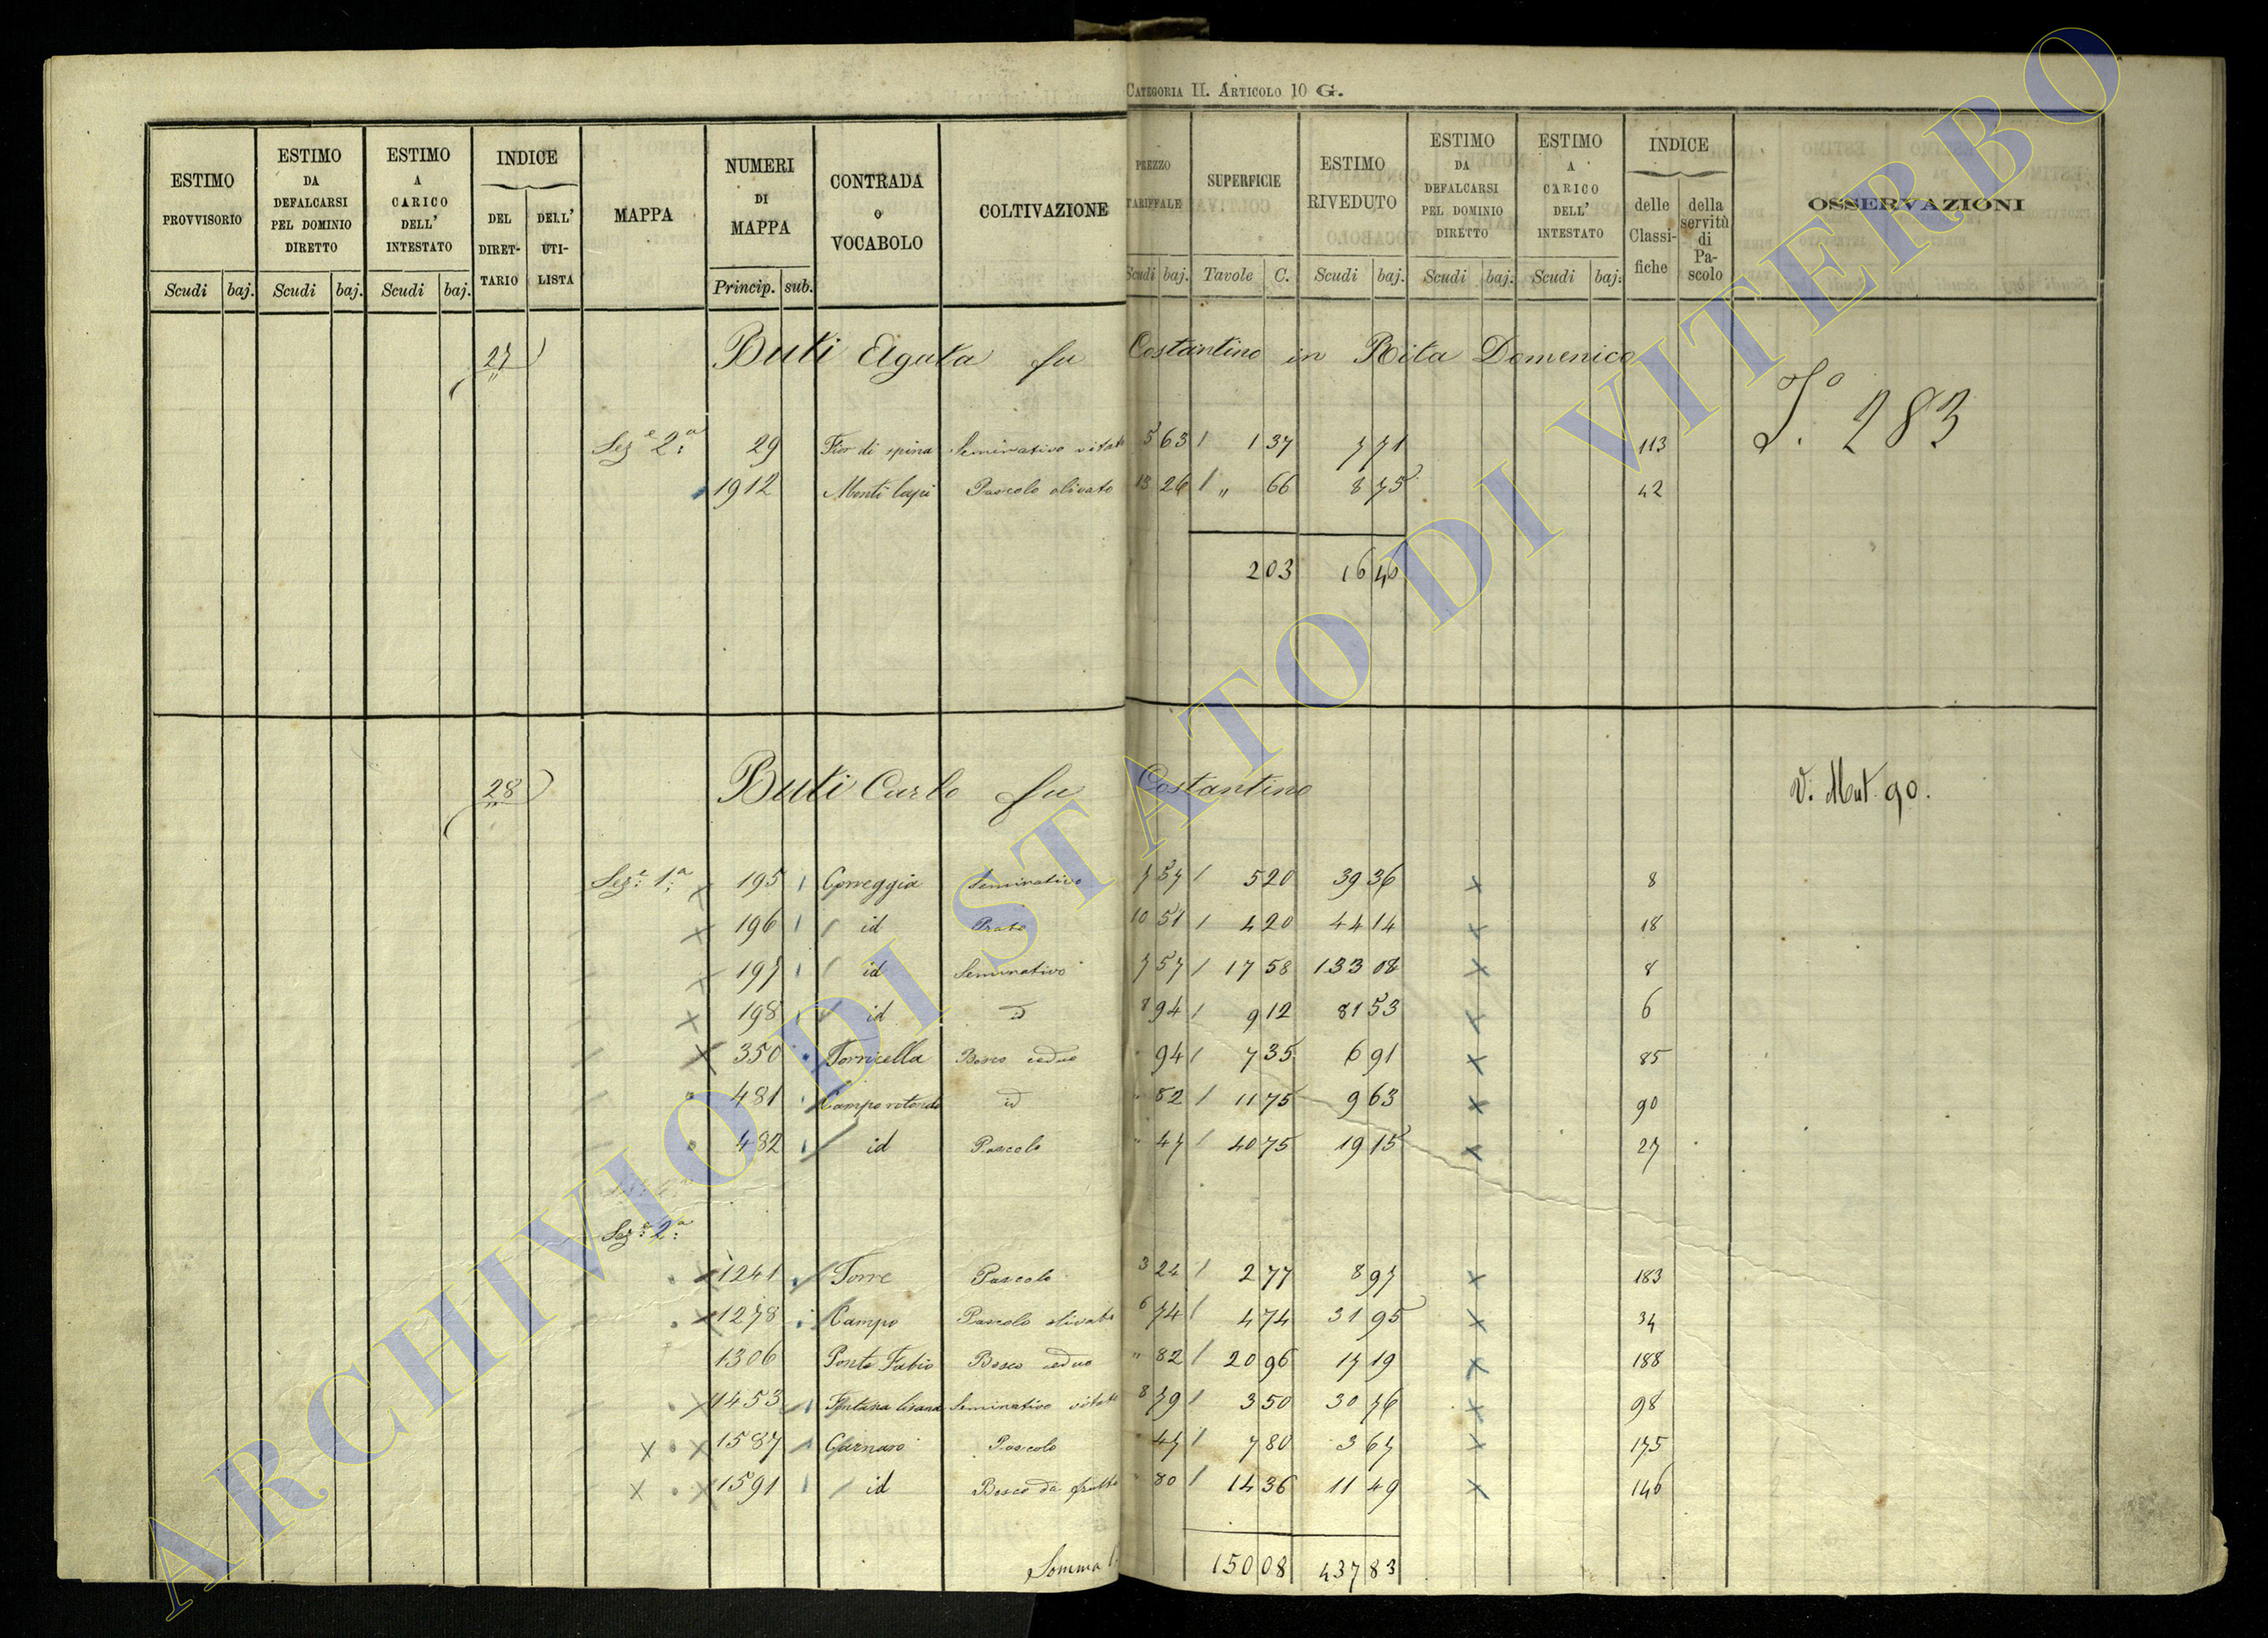 CATEGORIA II. ARTICOLO 10 G.
ESTIMO PROVVISORIO
ESTIMO DA DEFALCARSI PEL DOMINIO DIRETTO
ESTIMO A CARICO DELL' INTESTATO
INDICE
DEL DIRETTARIO
DELL' UTILISTA
MAPPA
NUMERI DI MAPPA
CONTRADA O VOCABOLO
COLTIVAZIONE
PREZZO TARIFFALE
SUPERFICIE
ESTIMO RIVEDUTO
ESTIMO DA DEFALCARSI PEL DOMINIO DIRETTO
ESTIMO A CARICO DELL' INTESTATO
INDICE
delle Classifiche
della servitù di Pascolo
OSSERVAZIONI
Scudi baj. Scudi baj. Scudi baj. Princip. sub. Scudi baj. Tavole C. Scudi baj. Scudi baj. Scudi baj.
27 Buti Agata fu Costantino in Rita Domenico
283
Sez.e 2.a 29 Fior di spina Seminativo vitato 5 63 1 37 7 71 113
1912 Monti Pascolo olivato 13 26 " 66 8 75 42
2 03 16 40
28 Buti Carlo fu Costantino V. Mut. 90.
Sez.e 1.a 195 Correggia Seminativo 7 57 5 20 39 36 8
196 id Prato 10 51 4 20 44 14 18
197 id Seminativo 7 57 17 58 133 08 8
198 id id 8 94 9 12 81 53 6
350 Torricella Bosco ceduo " 94 7 35 6 91 85
481 Campo rotondo id " 82 11 75 9 63 90
482 id Pascolo " 47 40 75 19 15 27
Sez.e 2.a
1241 Torre Pascolo 3 24 2 77 8 97 183
1278 Campo Pascolo olivato 6 74 4 74 31 95 34
1306 Ponte Fabio Bosco ceduo " 82 20 96 17 19 188
1453 Fontana Seminativo vitato 8 79 3 50 30 76 98
1587 Carnaro Pascolo " 47 7 80 3 67 175
1591 id Bosco da frutto " 80 14 36 11 49 146
Somma 150 08 437 83
ARCHIVIO DI STATO DI VITERBO